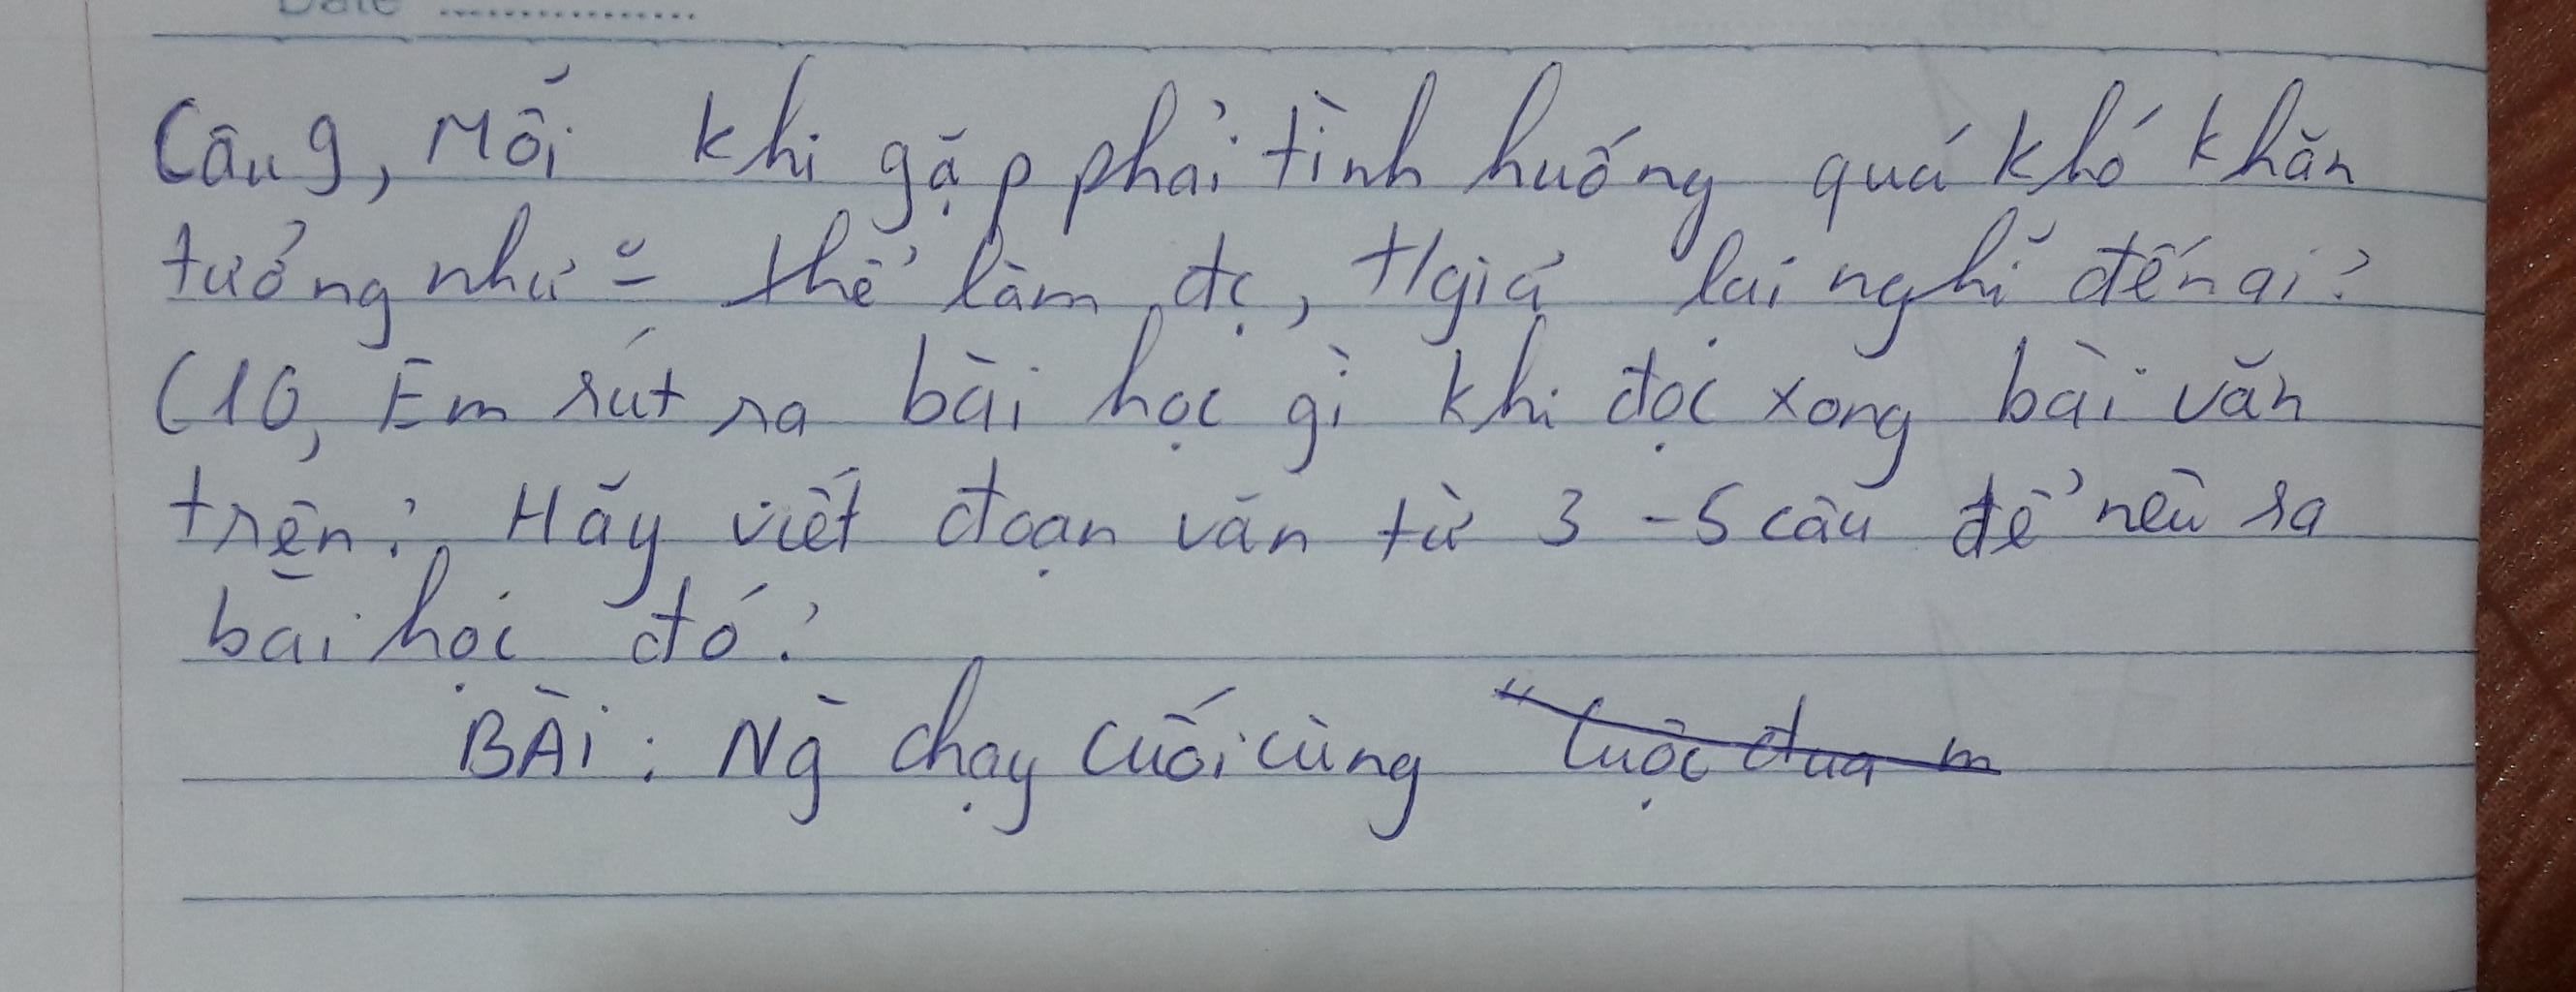 Date ..............
Câu 9, Mỗi khi gặp phải tình huống quá khó khăn
tưởng như thể làm đc, t/giả lại nghĩ đến ai?
C10, Em rút ra bài học gì khi đọc xong bài văn
trên? Hãy viết đoạn văn từ 3 - 5 câu để nêu ra
bài học đó?
BÀI: Ng̀ chạy cuối cùng "Cuộc đua m